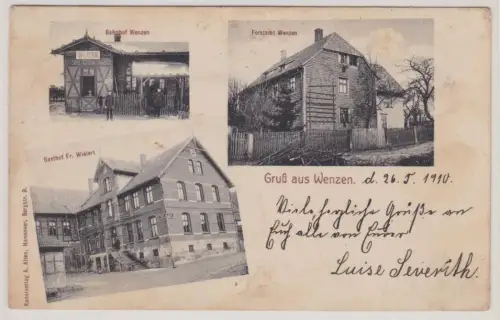 Bahnhof Wenzen
Forstamt Wenzen
Gasthof Fr. Wiklert
Gruß aus Wenzen. d. 26. 5. 1910.
Viele herzliche Grüße an
Euch alle von Eurer
Luise Severith.
Kunstverlag A. Alten, Hannover, Bergstr. 8.